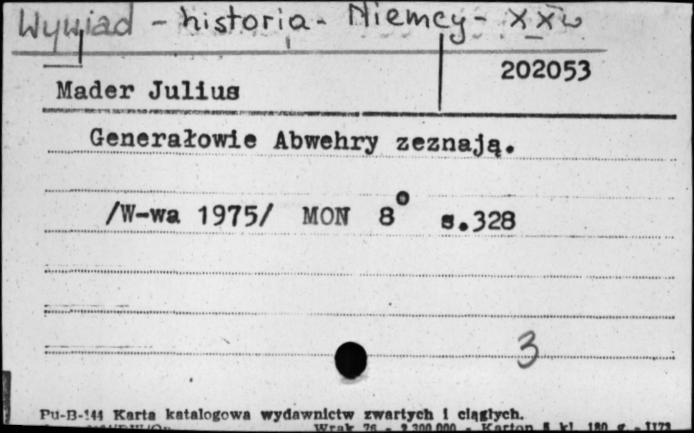 Wywiad - historia - Niemcy - XXw
202053
Mader Julius
Generałowie Abwehry zeznają.
/W-wa 1975/ MON 8° s.328
3
Pu-B-144 Karta katalogowa wydawnictw zwartych i ciągłych.
Wrak 76 - 2.300.000 - Karton 8 kl. 180 g -